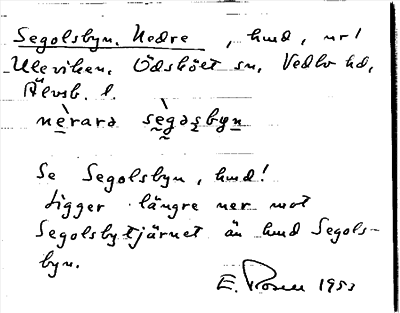 Segolsbyn, Nedre, hmd, nr 1
Uleviken, Ödskölt sn, Vedbo hd,
Älvsb. l.
nèrarə sègəsbyn
Se Segolsbyn, hmd!
Ligger längre ner mot
Segolsbytjärnet än hmd Segols-
byn.
E. Rosell 1953